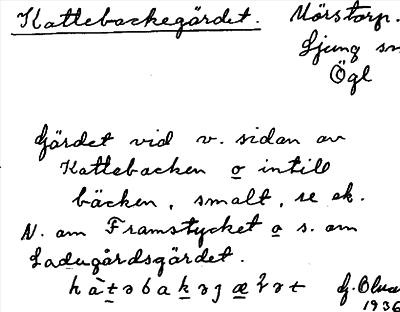 Kattebackegärdet. Mörstorp.
Ljung sn
Ögl
Gärdet vid v. sidan av
Kattebacken o intill
bäcken, smalt, se ek.
N. om Framstycket o s. om
Ladugårdsgärdet.
1936